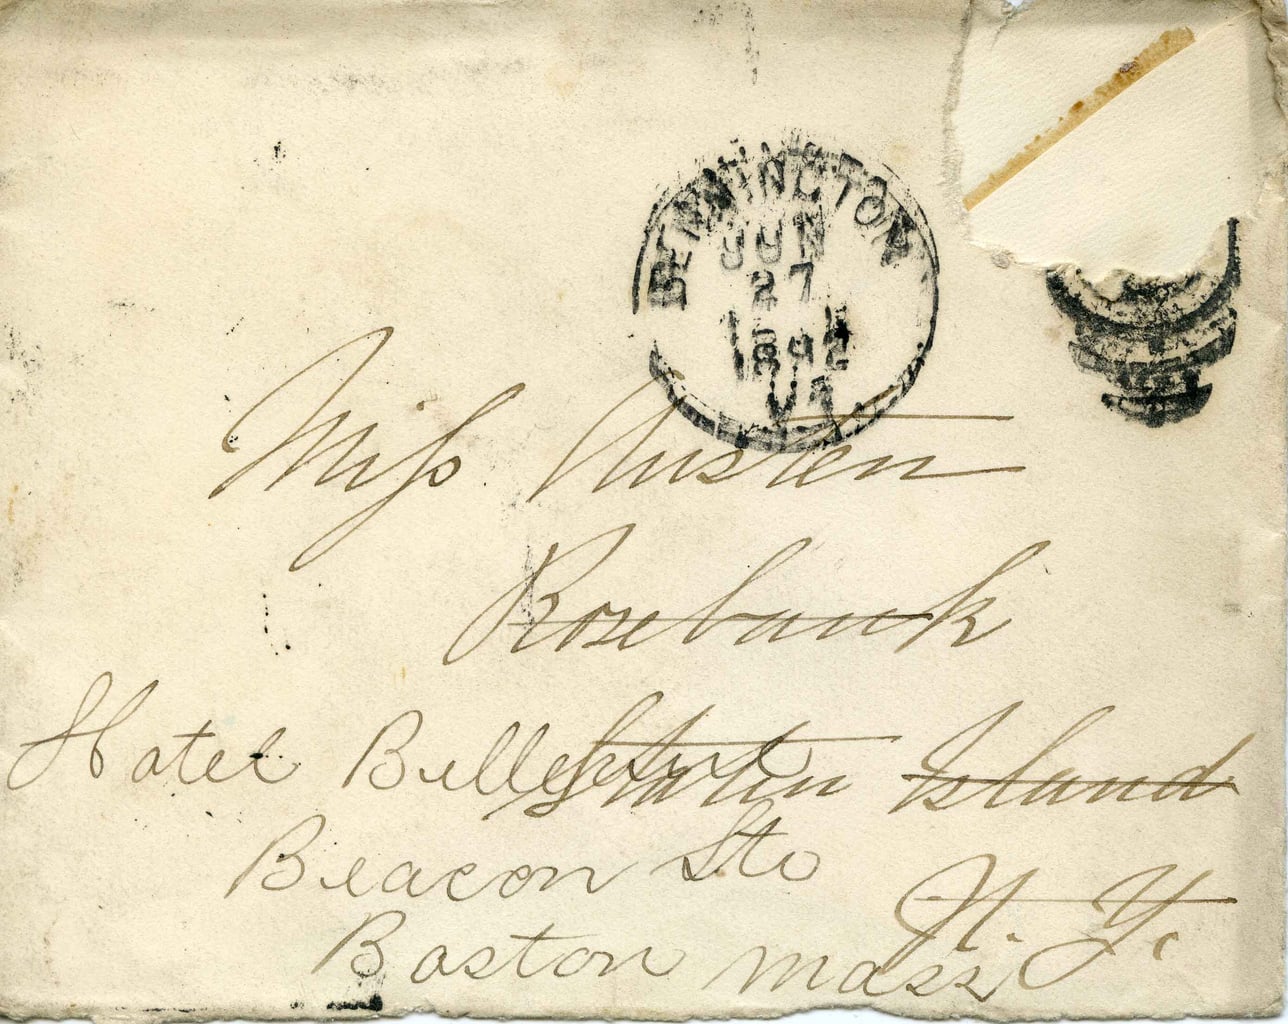 BENNINGTON
JUN
27
1892
VT
Miss Austen
Rosebank
Staten Island
N. Y.
Hotel
Beacon St.
Boston Mass